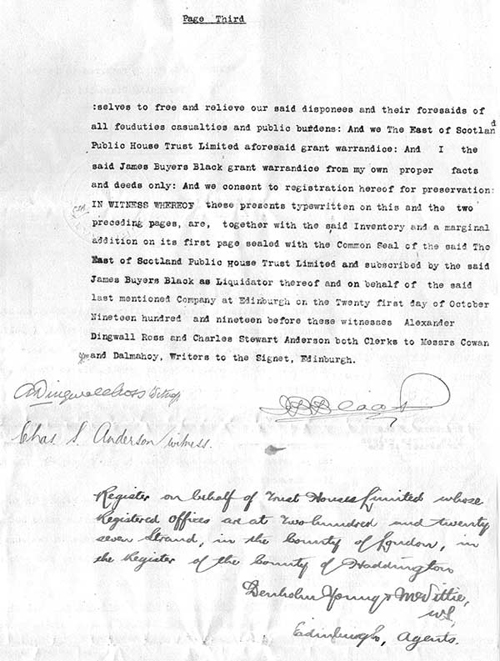 Page Third
:selves to free and relieve our said disponees and their foresaids of
all feuduties casualties and public burdens: And we The East of Scotland
Public House Trust Limited aforesaid grant warrandice: And I the
said James Buyers Black grant warrandice from my own proper facts
and deeds only: And we consent to registration hereof for preservation:
IN WITNESS WHEREOF these presents typewritten on this and the two
preceding pages, are, together with the said Inventory and a marginal
addition on its first page sealed with the Common Seal of the said The
East of Scotland Public House Trust Limited and subscribed by the said
James Buyers Black as Liquidator thereof and on behalf of the said
last mentioned Company at Edinburgh on the Twenty first day of October
Nineteen hundred and nineteen before these witnesses Alexander
Dingwall Ross and Charles Stewart Anderson both Clerks to Messrs Cowan
and Dalmahoy, Writers to the Signet, Edinburgh.
ADingwallRoss Witness
JBBlack
Chas S. Anderson witness.
Register on behalf of Trust Houses Limited whose
Registered Offices are at Two hundred and twenty
seven Strand, in the County of London, in
the Register of the County of Haddington
Denholm Young & McVittie,
WS,
Edinburgh, Agents.